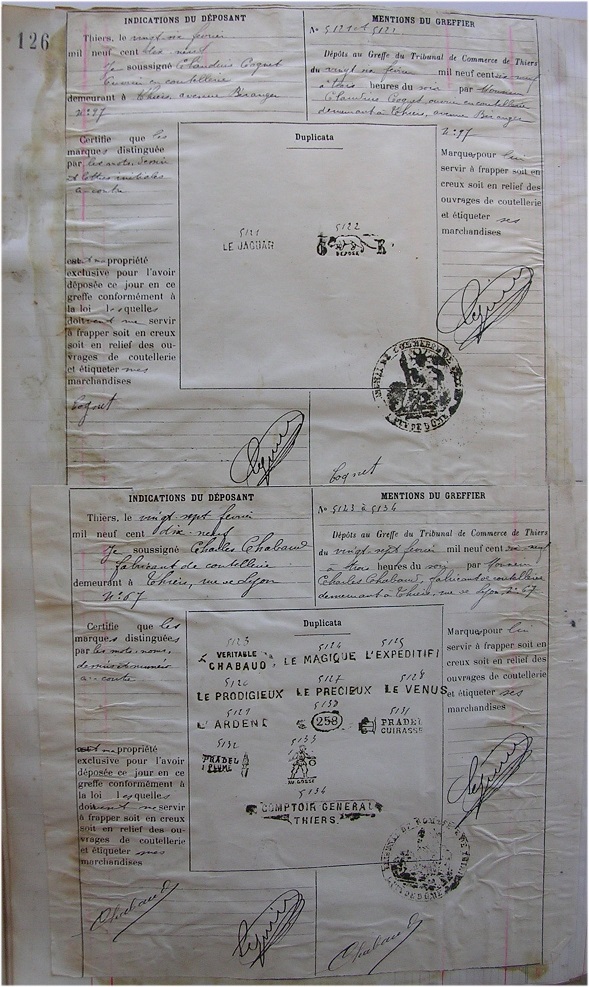 126
INDICATIONS DU DÉPOSANT
Thiers, le vingt six février
mil neuf cent dix neuf
Je soussigné Claudius Cognet
Ouvrier en coutellerie
demeurant à Thiers, avenue Béranger
N° 97
Certifie que les
marques distinguée
par les mots, dessin
et lettres initiales
ci-contre
est ma propriété
exclusive pour l'avoir
déposée ce jour en ce
greffe conformément à
la loi lesquelles
doivent me servir
à frapper soit en creux
soit en relief des ou-
vrages de coutellerie
et étiqueter mes
marchandises
Cognet
MENTIONS DU GREFFIER
N° 5121 et 5122
Dépôts au Greffe du Tribunal de Commerce de Thiers
du vingt six février mil neuf cent dix neuf
à trois heures du soir par Monsieur
Claudius Cognet ouvrier en coutellerie
demeurant à Thiers, avenue Béranger
N° 97
Duplicata
5121
LE JAGUAR
5122
DÉPOSÉ
Marque pour lui
servir à frapper soit en
creux soit en relief des
ouvrages de coutellerie
et étiqueter ses
marchandises
Cognet
INDICATIONS DU DÉPOSANT
Thiers, le vingt-sept février
mil neuf cent dix-neuf
Je soussigné Charles Chabaud
fabricant de coutellerie
demeurant à Thiers, rue de Lyon
N° 67
Certifie que les
marques distinguées
par les mots, noms,
dessins et numéro
ci-contre
est ma propriété
exclusive pour l'avoir
déposée ce jour en ce
greffe conformément à
la loi lesquelles
doivent me servir
à frapper soit en creux
soit en relief des ou-
vrages de coutellerie
et étiqueter mes
marchandises
Chabaud
MENTIONS DU GREFFIER
N° 5123 à 5134
Dépôts au Greffe du Tribunal de Commerce de Thiers
du vingt sept février mil neuf cent dix neuf
à trois heures du soir par Monsieur
Charles Chabaud, fabricant de coutellerie
demeurant à Thiers, rue de Lyon N° 67
Duplicata
5123
VERITABLE
CHABAUD
5124
LE MAGIQUE
5125
L'EXPEDITIF
5126
LE PRODIGIEUX
5127
LE PRECIEUX
5128
LE VENUS
5129
L'ARDENT
5130
258
5131
PRADEL
CUIRASSE
5132
PRADEL
PLUME
5133
AU GOSSE
5134
COMPTOIR GENERAL
THIERS.
Marque pour lui
servir à frapper soit en
creux soit en relief des
ouvrages de coutellerie
et étiqueter ses
marchandises
Chabaud